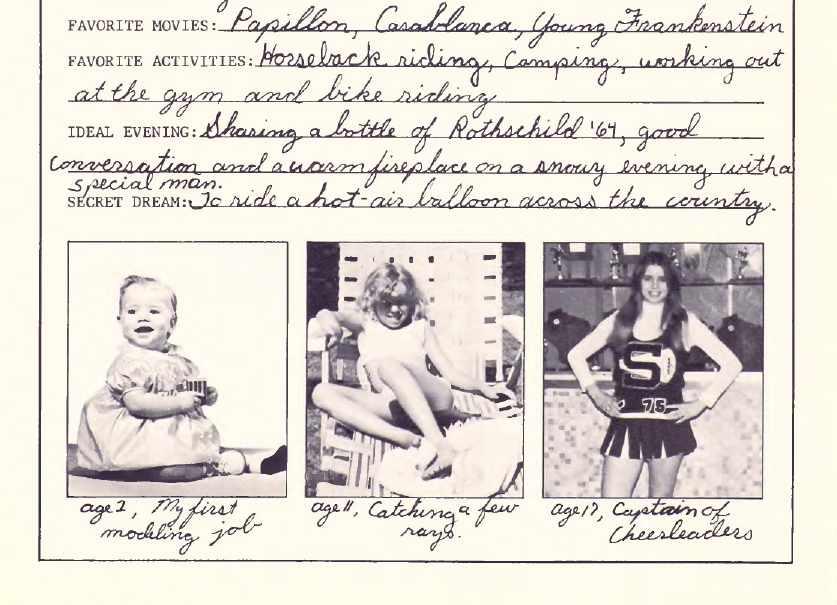 FAVORITE MOVIES: Papillon, Casablanca, Young Frankenstein
FAVORITE ACTIVITIES: Horseback riding, Camping, working out
at the gym and bike riding
IDEAL EVENING: Sharing a bottle of Rothschild '64, good
conversation and a warm fireplace on a snowy evening with a
special man.
SECRET DREAM: To ride a hot-air balloon across the country.
S
75
age 2, My first
modeling job
age 11, Catching a few
rays.
age 17, Captain of
Cheerleaders